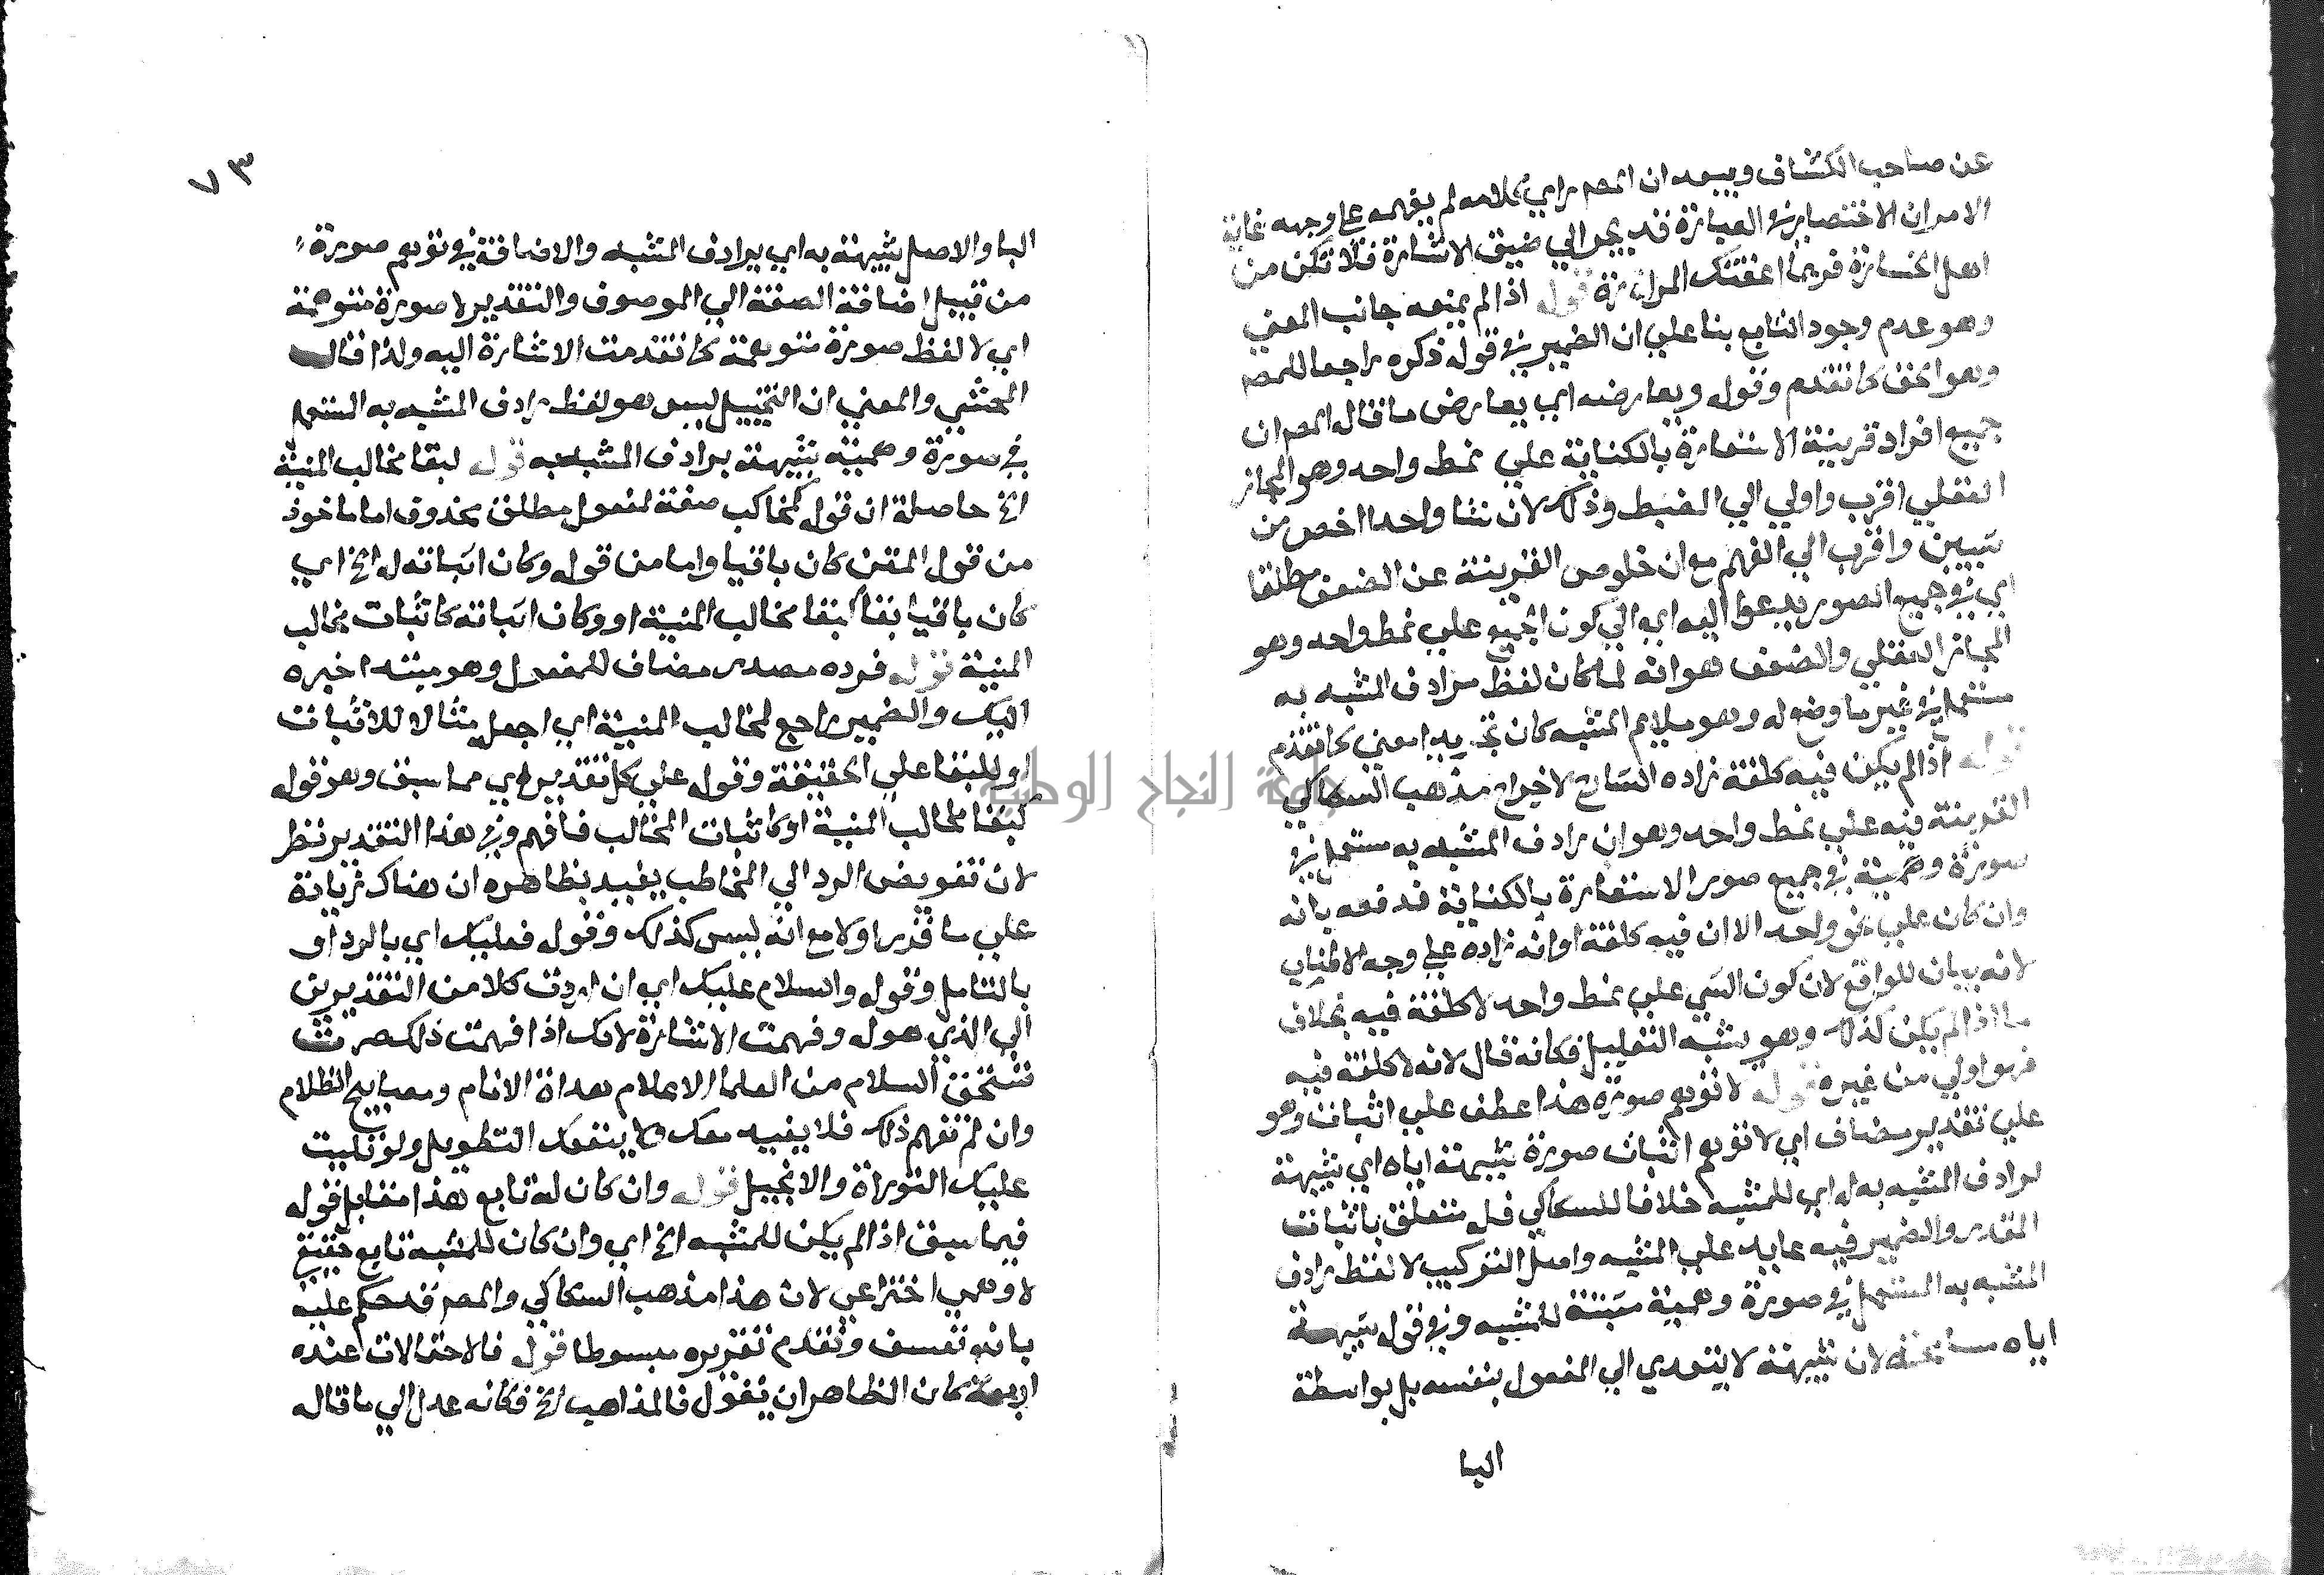 عن صاحب الكشاف ويبعد ان المص راي كلامه لم يفهمه علي وجهه غاية
الامر ان الاختصار في العبارة قد يجر الي ضيق الاشارة فلا تكن من
اهل الخسارة فربما اعقتك المرارة قوله اذا لم يمنعه جانب المعني
وهو عدم وجود التابع بنا علي ان الضمير في قوله ذكره راجعا للمص
وهو الحق كما تقدم وقوله ويعارضه اي يعارض ما قاله المص ان
جميع افراد قرينة الاستعارة بالكناية علي نمط واحد وهو المجاز
العقلي اقرب واولي الي الضبط وذلك لان شيا واحدا اخص من
شيين واقرب الي الفهم مع ان خلوص القرينة عن الضعف مطلقا
اي في جميع الصور يدعوا اليه اي الي كون الجميع علي نمط واحد وهو
المجاز العقلي والضعف هو انه لما كان لفظ مرادف المشبه به
مستعملا في غير ما وضع له وهو ملايم المشبه كان تجريدا معني كما تقدم
قوله اذا لم يكن فيه كلفة زاده الشارح لاخراج مذهب السكاكي
القرينة فيه علي نمط واحد وهو ان مرادف المشبه به مستعمل في
صورة وهمية في جميع صور الاستعارة بالكناية فدفعه بانه
وان كان علي نحو واحد الا ان فيه كلفة او انه زاده علي وجه الاطناب
لانه بيان للواقع لان كون الشي علي نمط واحد لا كلفة فيه بخلاف
ما اذا لم يكن كذلك وهو يشبه التعليل فكانه قال لانه لا كلفة فيه
فهو اولي من غيره قوله لا توهم صورة هذا عطف علي اثبات وهو
علي تقدير مضاف اي لا توهم اثبات صورة شبيهة اياه اي شبيهة
لرادف المشبه به له اي للمشبه خلافا للسكاكي فله متعلق باثبات
المقدر والضمير فيه عايد علي المشبه واصل التركيب لا لفظ مرادف
المشبه به المستعمل في صورة وهمية مثبتة للمشبه وفي قوله شبيهة
اياه مسامحة لان شبيهة لا يتعدي الي المفعول بنفسه بل بواسطة
اليا
٧٣
البا والاصل شبيهة به اي برادف المشبه والاضافة في توهم صورة
من قبيل اضافة الصفة الي الموصوف والتقدير لا صورة متوهمة
اي لا لفظ صورة متوهمة كما تقدمت الاشارة اليه ولذا قال
المحشي والمعني ان التخييل ليس هو لفظ مرادف المشبه به المستعمل
في صورة وهمية شبيهة برادف المشبه به قوله لبقا مخالب المنية
الخ حاصله ان قوله كمخالب صفة لمفعول مطلق محذوف اما ماخوذ
من قول المتن كان باقيا واما من قوله وكان اثباته له الخ اي
كان باقيا بقا كبقا مخالب المنية او وكان اثباته كاثبات مخالب
المنية قوله فرده مصدر مضاف للمفعول وهو مبتدا خبره
اليك والضمير راجع لمخالب المنية اي اجعل مثالا للاثبات
او للبقا علي الحقيقة وقوله علي كل تقدير اي مما سبق وهو قوله
كبقا مخالب المنية او كاثبات المخالب فافهم وفي هذا التقدير نظر
لان تفويض الرد الي المخاطب يفيد بظاهره ان هناك زيادة
علي ما قدر اولا مع انه ليس كذلك وقوله فعليك اي بالرد او
بالتامل وقوله والسلام عليك اي ان اردت كلا من التقديرين
الي الذي هو له وفهمت الاشارة لانك اذا فهمت ذلك صرت
تستحق السلام من العلما الاعلام هداة الانام ومصابيح الظلام
وان لم تفهم ذلك فلا يفيد معك ولا ينفعك التطويل ولو تليت
عليك التوراة والانجيل قوله وان كان له تابع هذا مقابل قوله
فيما سبق اذا لم يكن للمشبه الخ اي وان كان للمشبه تابع حقيقي
لا وهمي اختراعي لان هذا مذهب السكاكي والمص قد حكم عليه
بانه تعسف وتقدم تقريره مبسوطا قوله فالاحتمالات عنده
اربعة كان الظاهر ان يقول فالمذاهب الخ فكانه عدل الي ما قاله
جامعة النجاح الوطنية